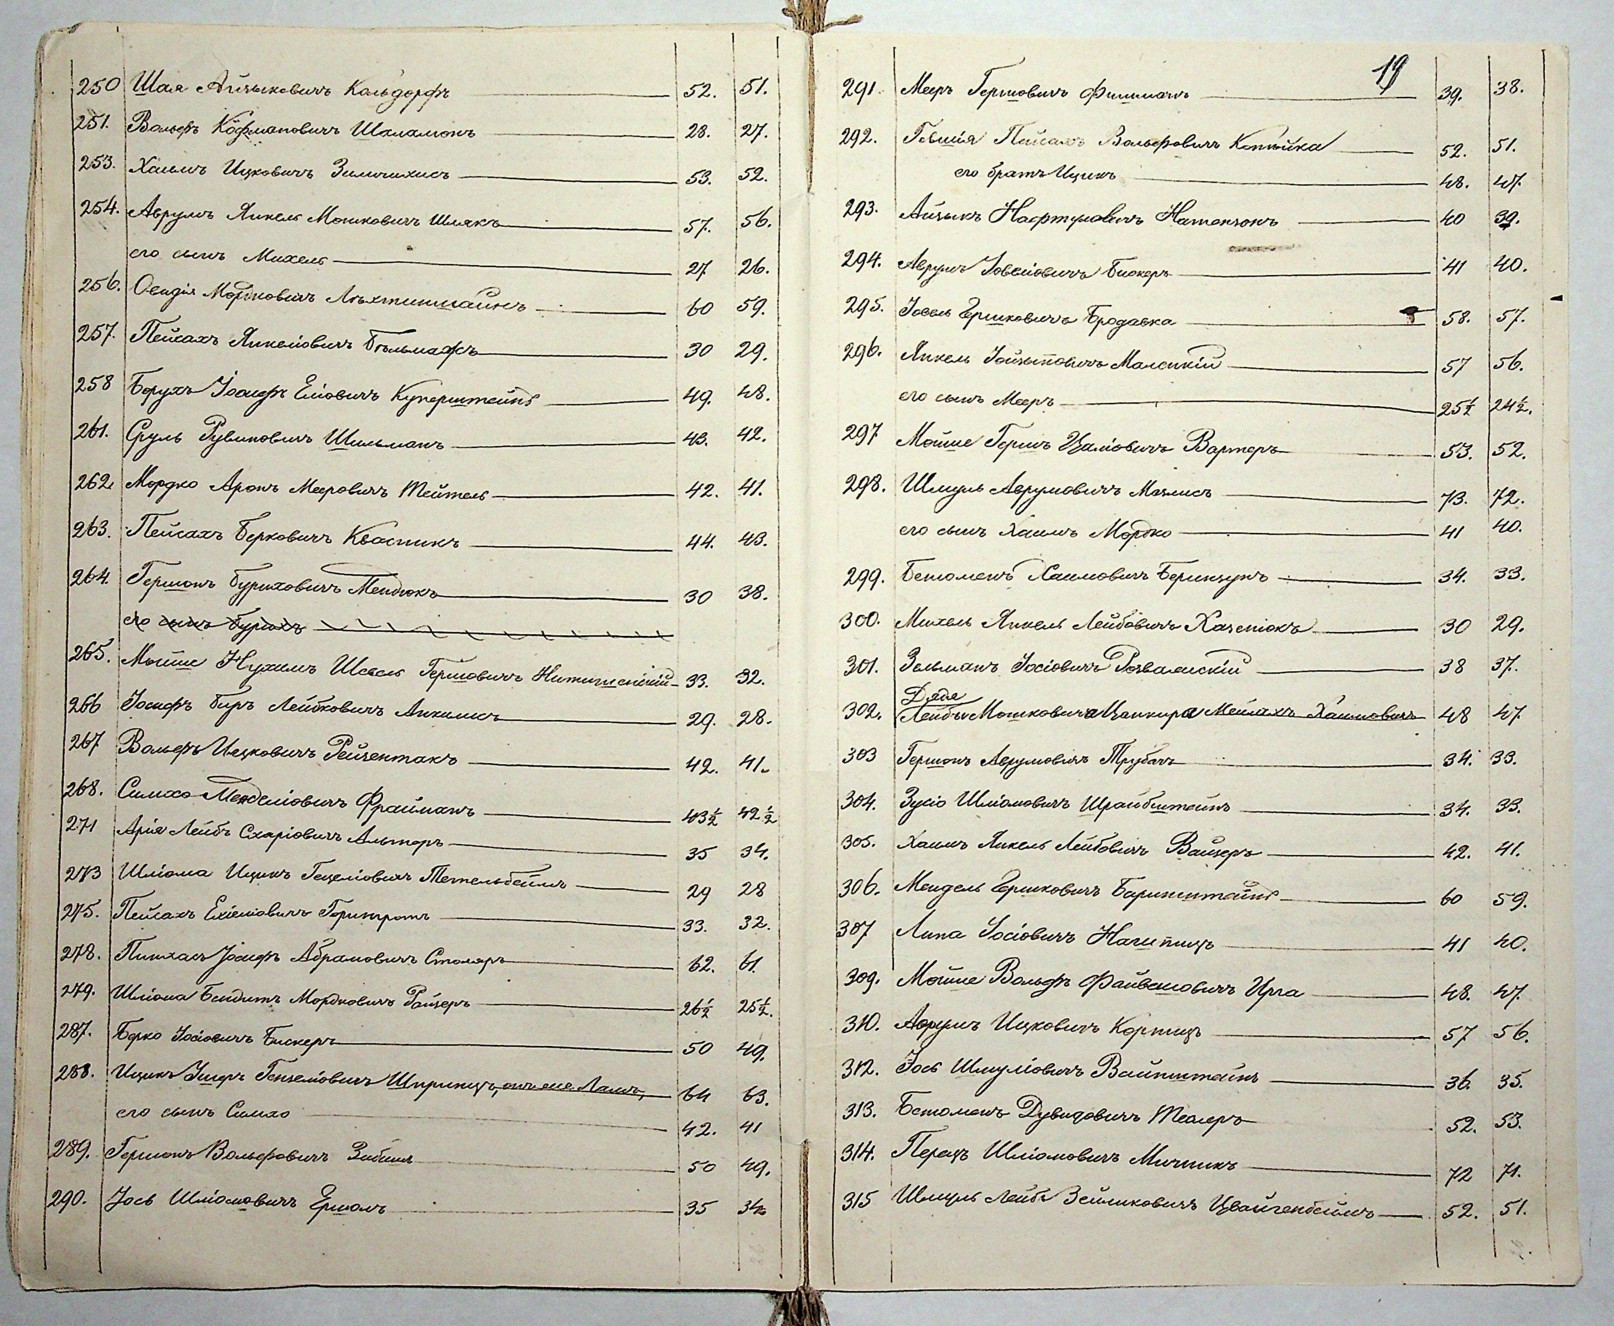 250 Шая Айзыковичъ Кольдорфъ 52. 51.
251. Вольфъ Кофмановичъ Шаламонъ 28. 27.
253. Хаимъ Ицковичъ 53. 52.
254. Аврумъ Янкель Мошковичъ Шлякъ 57. 56.
его сынъ Михель 27 26.
256. Овадія Мортковичъ 60 59.
257. Пейсахъ Янкеліовичъ Гельмафъ 30 29.
258 Борухъ Іосифъ Еліовичъ Куперштейнъ 49. 48.
261. Сруль Рувиновичъ Шильманъ 43. 42.
262. Мордко Аронъ Мееровичъ Тейтель 42. 41.
263. Пейсахъ Берковичъ Квасникъ 44. 43.
264. Гершонъ Буриховичъ Мендюкъ 30 38.
его сынъ Бурихъ
265. Мойше Нухимъ Шевель Гершовичъ 33. 32.
266 Іосифъ Беръ Лейбковичъ 29. 28.
267 Вольфъ Ицковичъ Рейзентакъ 42. 41.
268. Симхо Менделіовичъ Фрайманъ 43½ 42½
271 Арія Лейбъ Схаріовичъ Альтеръ 35 34.
273 Шліома Ицикъ Гецеліовичъ Тетельбеймъ 29 28
275. Пейсахъ Ехіеліовичъ 33. 32.
278. Пинхасъ Іосифъ Абрамовичъ Столяръ 62. 61.
279. Шліома Бендитъ Мордковичъ Райзеръ 26½ 25½.
287. Борко Іосіовичъ Бискеръ 50 49.
288. Ицикъ Ушеръ Гецеліовичъ Шпринцъ, онъ же Ламъ, 64 63.
его сынъ Симхо 42. 41
289. Гершонъ Вольфовичъ 50 49.
290. Іось Шліомовичъ Ершомъ 35 34.
19
291. Мееръ Гершовичъ Фишманъ 39. 38.
292. Говшія Пейсахъ Вольфовичъ Копѣйка 52. 51.
его братъ Ицикъ 48. 47.
293. Айзыкъ Нафтуловичъ Натензонъ 40 39.
294. Аврумъ Іовсіовичъ Бискеръ 41 40.
295. Іосель Гершковичъ Бродавка 58. 57.
296. Янкель 57 56.
его сынъ Мееръ 25½ 24½.
297 Мойше Гершъ Цаліовичъ Вартеръ 53. 52.
298. Шмуль Аврумовичъ 73. 72.
его сынъ Хаимъ Мордко 41 40.
299. Бенюменъ Хаимовичъ 34. 33.
300. Михель Янкель Лейбовичъ Хазенюкъ 30 29.
301. Зельманъ Іосіовичъ Розвалскій 38 37.
Дядя
302. Лейбы Мошковича Цапкира Мейлахъ Хаимовичъ 48 47
303 Гершонъ Аврумовичъ Трубачъ 34. 33.
304. Зусіо Шліомовичъ Шрайбштейнъ 34. 33.
305. Хаимъ Янкель Лейбовичъ Вайзеръ 42. 41.
306. Мендель Гершковичъ 60 59.
307 Липа Іосіовичъ 41 40.
309. Мойше Вольфъ Файвешовичъ Ирга 48. 47.
310. Аврумъ Ицковичъ Коргицъ 57 56.
312. Іось Шмуліовичъ Вайнштейнъ 36. 35.
313. Бенюменъ Дувидовичъ Теслеръ 52. 53.
314. Перецъ Шліомовичъ Мичникъ 72 71.
315 Шмуль Лейбъ Зейликовичъ Цвайгенбеймъ 52. 51.